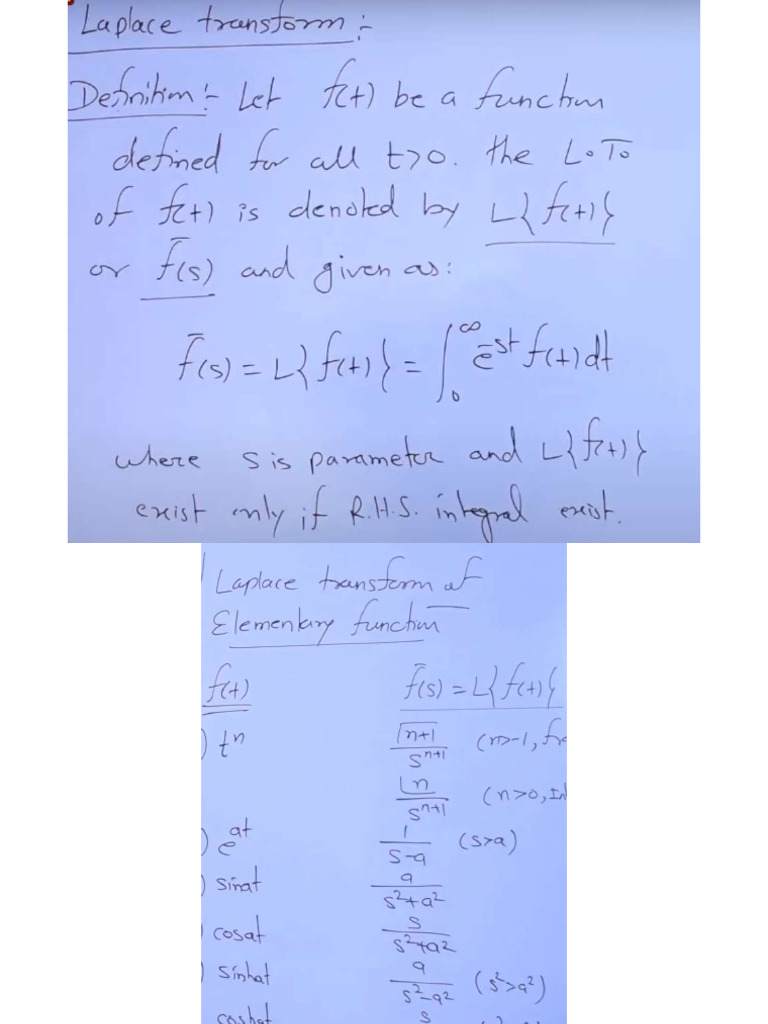 Laplace transform :-
Definition :- Let f(t) be a function
defined for all t>0. the L.T.
of f(t) is denoted by L{f(t)}
or f̄(s) and given as:
f̄(s) = L{f(t)} = ∫₀^∞ e^-st f(t) dt
where s is parameter and L{f(t)}
exist only if R.H.S. integral exist.
Laplace transform of
Elementary function
f(t) f̄(s) = L{f(t)}
) t^n Γn+1 / s^n+1 (n>-1, fr
⌊n / s^n+1 (n>0, In
) e^at 1 / s-a (s>a)
) sinat a / s²+a²
) cosat s / s²+a²
) sinhat a / s²-a² (s²>a²)
coshat s